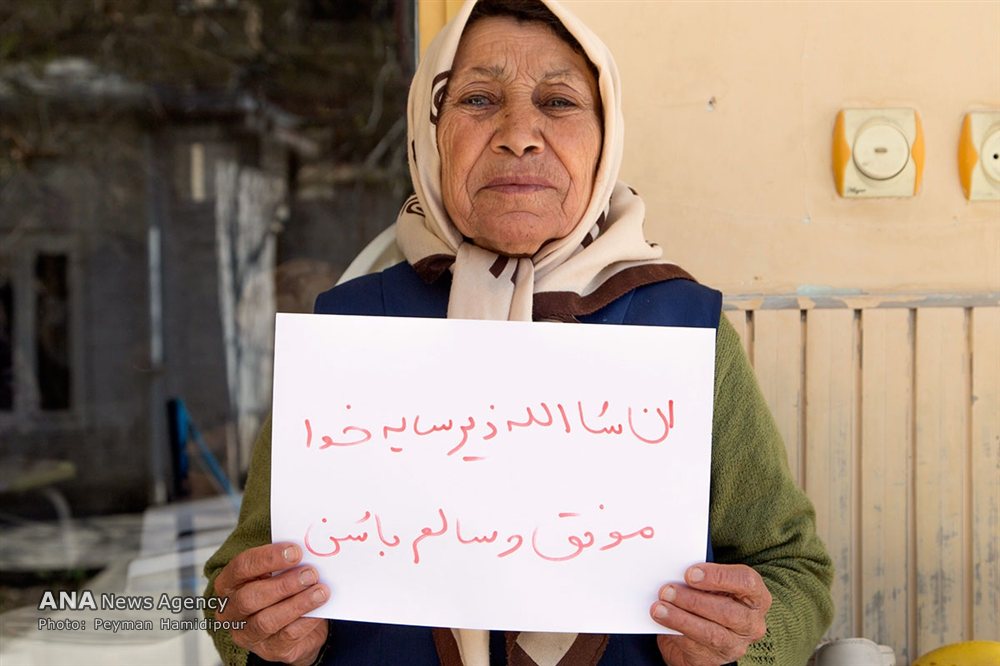 ان شا الله زیر سایه خدا
موفق و سالم باشن
ANA News Agency
Photo: Peyman Hamidipour